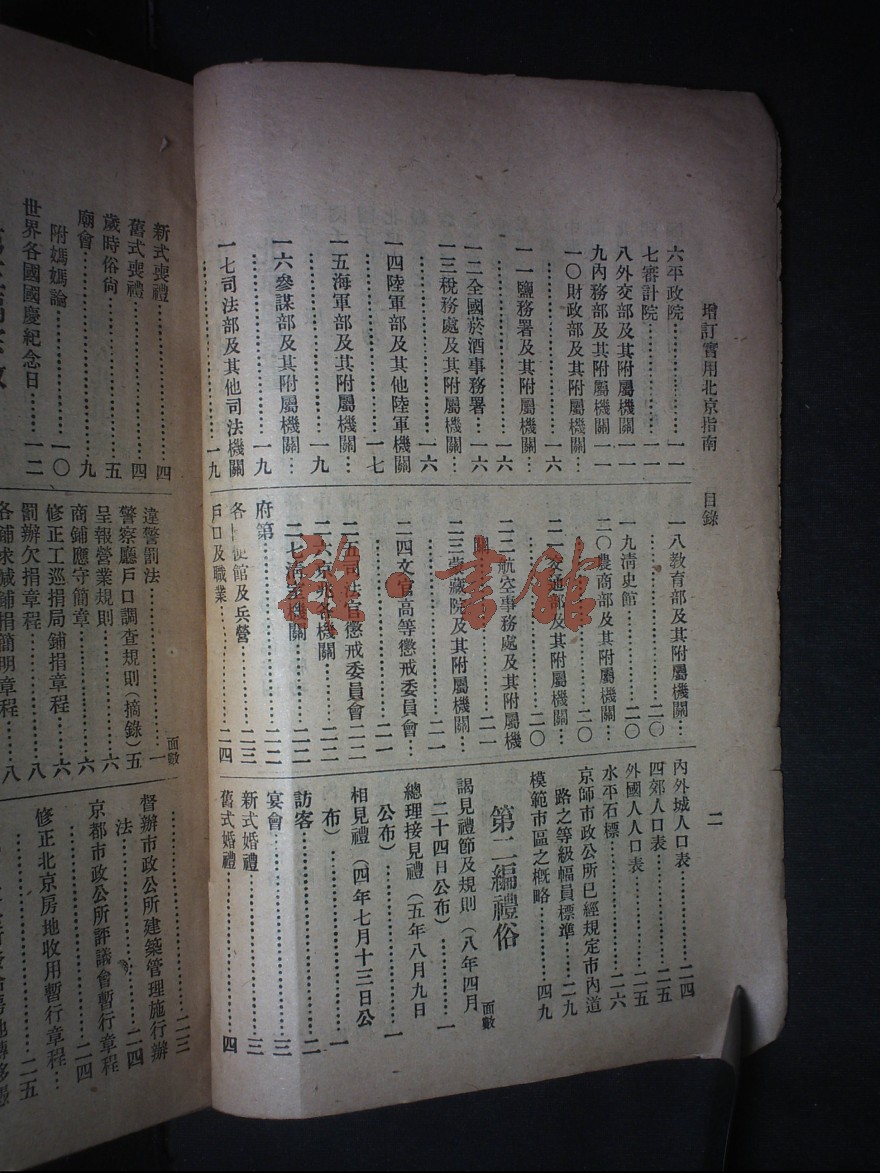 增訂實用北京指南　目錄　二
六平政院……一一
七審計院……一一
八外交部及其附屬機關一一
九內務部及其附屬機關一一
一〇財政部及其附屬機關…
……一六
一一鹽務署及其附屬機關…
……一六
一二全國菸酒事務署…一六
一三稅務處及其附屬機關…
……一六
一四陸軍部及其他陸軍機關
……一七
一五海軍部及其附屬機關…
……一九
一六參謀部及其附屬機關…
……一九
一七司法部及其他司法機關
……一九
一八教育部及其附屬機關…
……二〇
一九清史館……二〇
二〇農商部及其附屬機關…
……二〇
二一交通部及其附屬機關…
……二〇
二二航空事務處及其附屬機
關……二一
二三蒙藏院及其附屬機關…
……二一
二四文官高等懲戒委員會…
……二一
二五司法官懲戒委員會二二
二六京兆各機關……二二
二七清室機關……二二
府第……二二
各國使館及兵營……二三
戶口及職業……二四
內外城人口表……二四
四郊人口表……二五
外國人人口表……二五
水平石標……二六
京師市政公所已經規定市內道
路之等級幅員標準……二九
模範市區之概略……四九
第二編禮俗
面數
謁見禮節及規則（八年四月
二十四日公布）……一
總理接見禮（五年八月九日
公布）……一
相見禮（四年七月十三日公
布）……一
訪客……二
宴會……三
新式婚禮……三
舊式婚禮……四
新式喪禮……四
舊式喪禮……四
歲時俗尙……五
廟會……九
附媽媽論……一〇
世界各國國慶紀念日……一二
面數
違警罰法……一
警察廳戶口調查規則（摘錄）五
呈報營業規則……六
商鋪應守簡章……六
修正工巡捐局鋪捐章程…六
罰辦欠捐章程……八
各鋪求減鋪捐簡明章程…八
……二三
督辦市政公所建築管理施行辦
法……二四
京都市政公所評議會暫行章程
……二四
修正北京房地收用暫行章程…
……二五